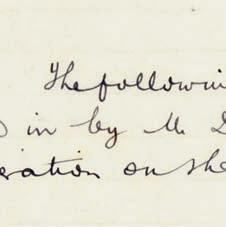 The followin
in by M. D
eration on the